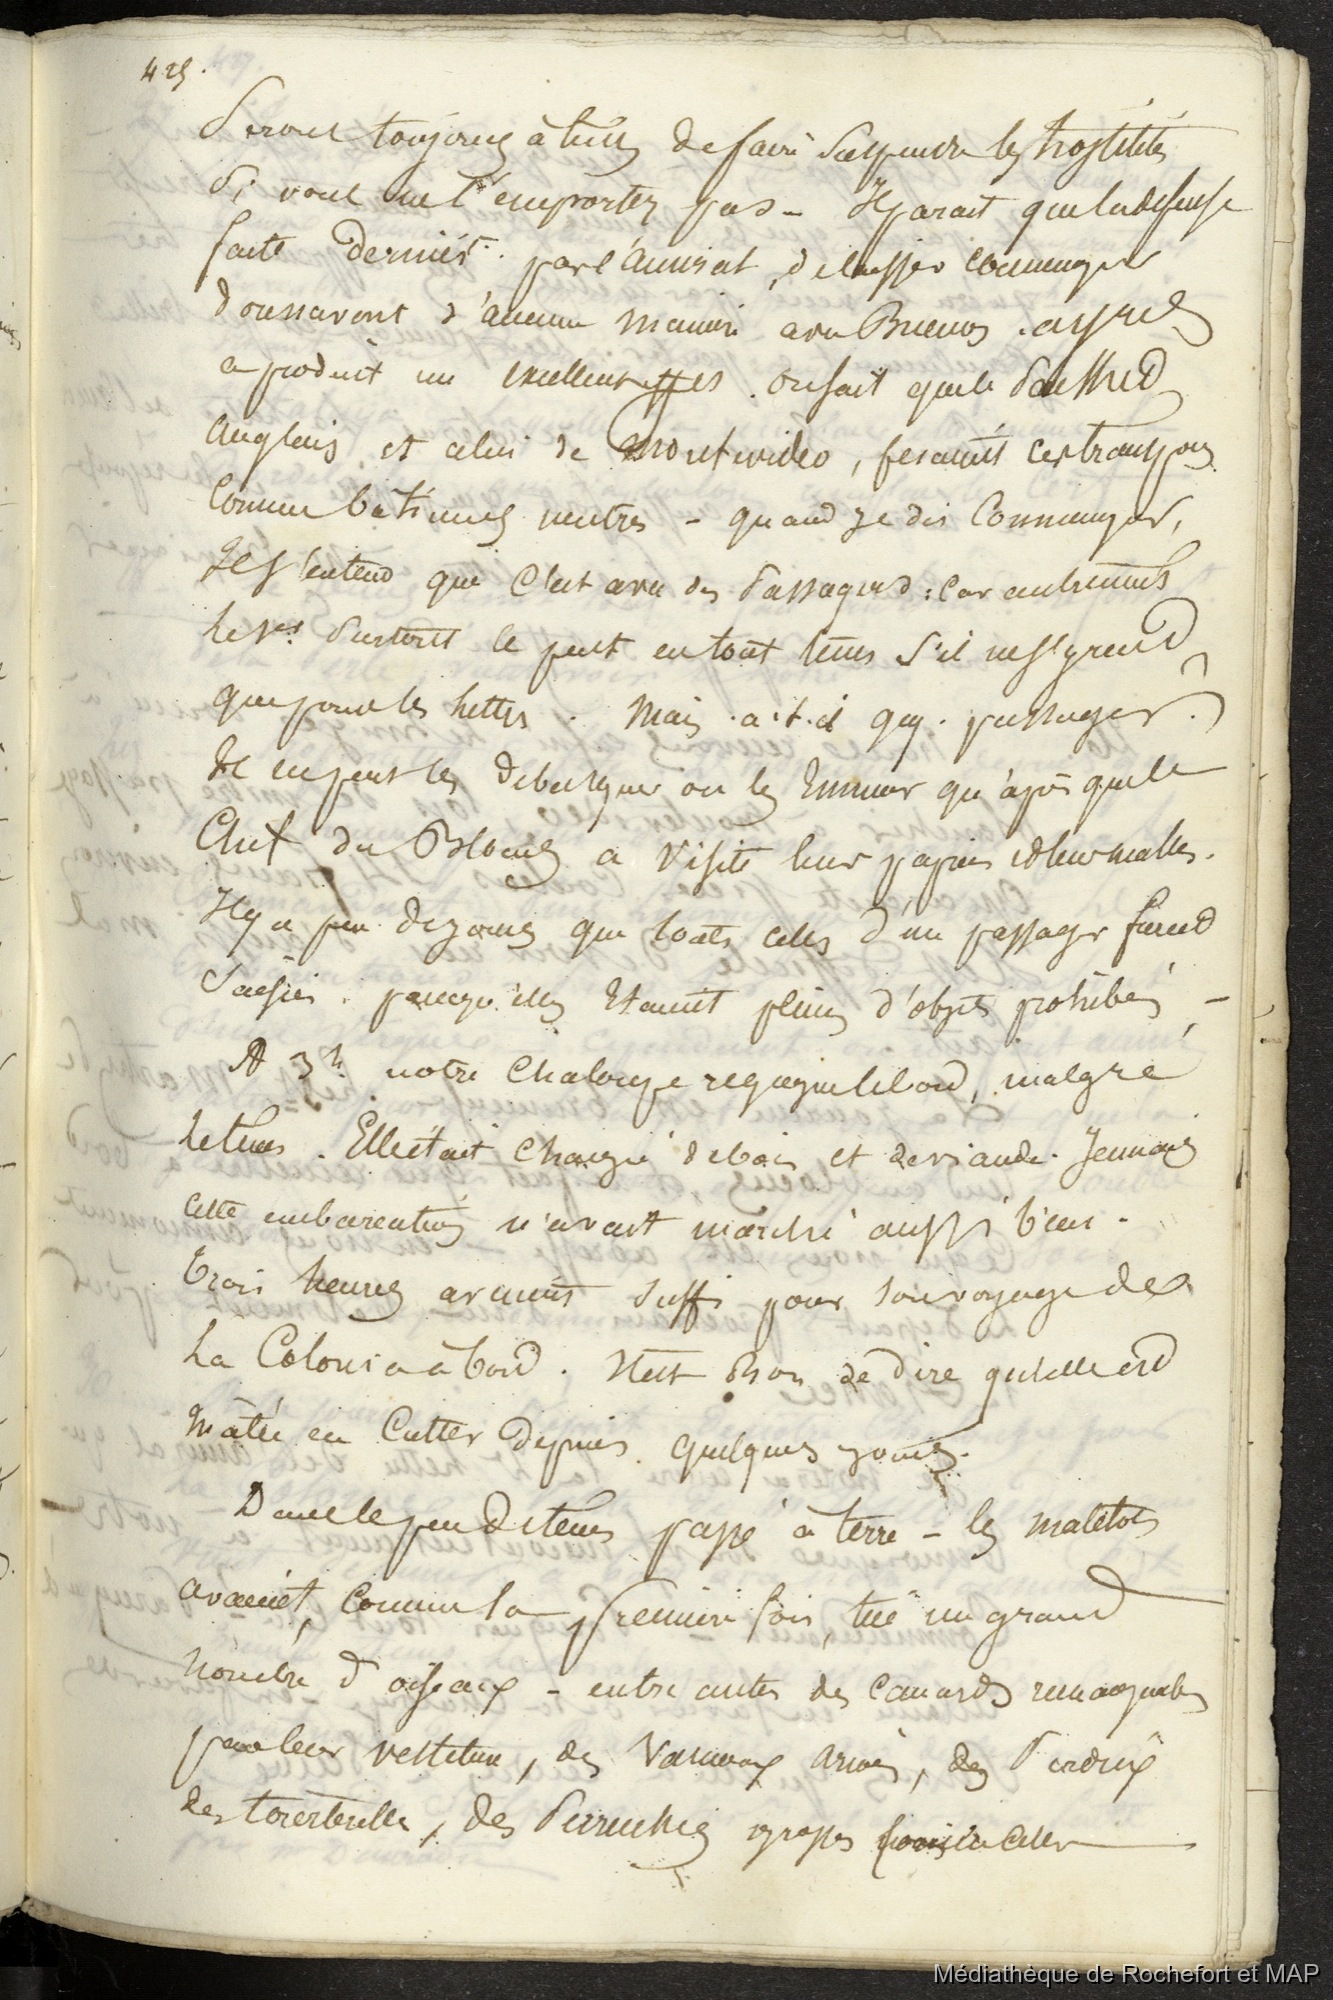 425.
Serons toujours à tems de faire suspendre les hostilités
Si vous ne l'emportez pas - Il parait que la defense
faite dernièrt. par l'amiral, de laisser communiquer
dorénavant d'aucune manière avec Buenos-ayres
a produit un excellent effet. on sait que le
anglais et celui de Montevideo, fesaient ces transports
Comme bâtimens neutres - quand je dis Communiquer,
Il s'entend que C'est avec des Passagers : car autrement
le peut en tout tems s'il ne s'y rend
que pour les lettres. Mais a-t-il qq. passagers ?
Il ne peut les debarquer ou les Emmener qu'après que le
Chef du Blocus a visité leurs papiers et leurs malles.
Il y a peu de jours que toutes celles d'un passager furent
Saisies, parcequ'elles Etaient pleines d'objets prohibés -
A 3h. notre Chaloupe regagne le bord, malgré
le tems. Elle était Chargée de bois et de viande. Jamais
cette embarcation n'avait marché aussi bien.
trois heures avaient suffi pour son voyage de
La Colonia à bord. Il est bon de dire qu'elle est
mâtée en Cutter depuis quelques jours.
Dans le peu de tems passé à terre - les matelots
avaient, comme la première fois, tué un grand
nombre d'oiseaux - entre autres des canards remarquables
par leur vestiture, des Vanneaux armés, des Perdrix
des tourterelles, des Perruches grosses comme celles
Médiathèque de Rochefort et MAP